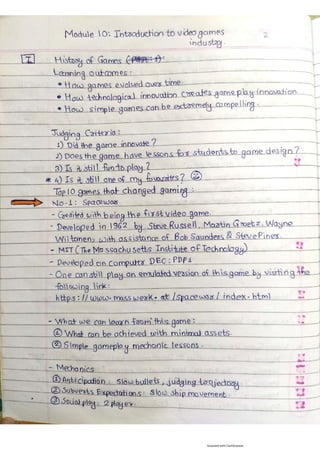 Module 10: Introduction to video games
industry.
2
I
History of Games
Learning outcomes:
• How games evolved over time.
• How technological innovation creates gameplay innovation
• How simple games can be extremely compelling.
Judging Criteria:
1) Did the game innovate?
2) Does the game have lessons for students to game design?
3) Is it still fun to play?
* 4) Is it still one of my favourites?
Top 10 games that changed gaming:
No-1: Spacewar
- Credited with being the first video game.
- Developed in 1962 by Steve Russell, Martin Graetz, Wayne
Wiitanen, with assistance of Bob Saunders & Steve Piner.
- MIT (The Massachusetts Institute of Technology)
- Developed on computer DEC: PDP1
- One can still play an emulated version of this game by visiting the
following link:
https://www.masswerk.at/spacewar/index.html
- What we can learn from this game:
① What can be achieved with minimal assets.
② Simple gameplay mechanic lessons.
- Mechanics
① Anticipation: Slow bullets, judging trajectory
② Subverts Expectations: Slow ship movement.
③ Social play: 2 player.
Scanned with CamScanner